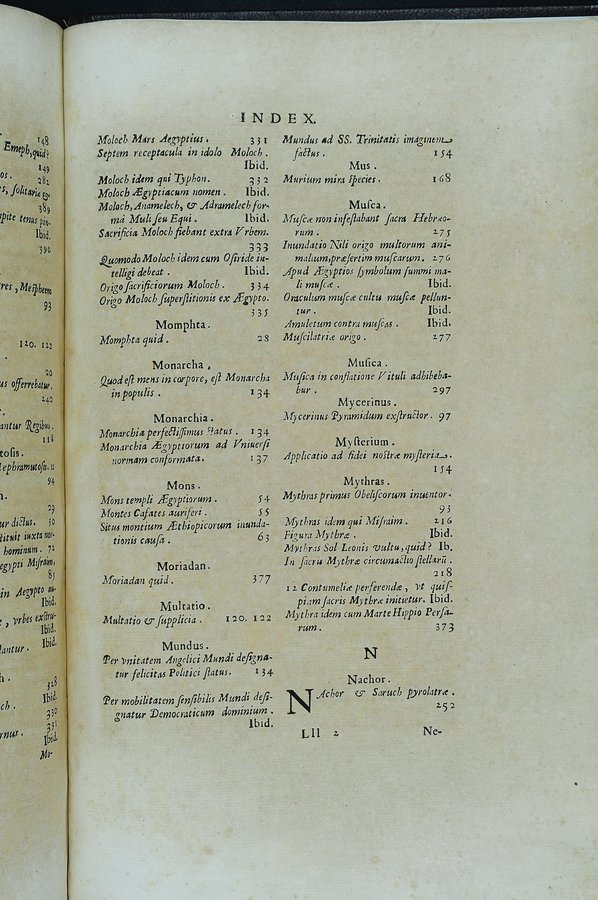 148
Emeph, quid?
149
os. 282
s, solitarie ex-
389
pite tenus pin-
Ibid.
390
res, Mespheen
93
120. 122
20
us offerrebatur.
240
antur Regibus.
118
tosis.
ephramutosis. 11
94
n.
29
ur dictus. 30
stituit iuxta nor-
hominum. 72
egypti Misraim,
85
in Aegypto au-
Ibid.
, vrbes exstru-
Ibid.
lantur. Ibid.
328
ch. Ibid.
330
331
rnus. Ibid.
Mo-
INDEX.
Moloch Mars Aegyptius. 331
Septem receptacula in idolo Moloch.
Ibid.
Moloch idem qui Typhon. 332
Moloch Ægyptiacum nomen. Ibid.
Moloch, Anamelech, & Adramelech for-
mâ Muli seu Equi. Ibid.
Sacrificia Moloch fiebant extra Vrbem.
333
Quomodo Moloch idem cum Osiride in-
telligi debeat. Ibid.
Origo sacrificiorum Moloch. 334
Origo Moloch superstitionis ex Ægypto.
335
Momphta.
Momphta quid. 28
Monarcha,
Quod est mens in corpore, est Monarcha
in populis. 134
Monarchia.
Monarchia perfectissimus status. 134
Monarchia Ægyptiorum ad Vniuersi
normam conformata. 137
Mons.
Mons templi Ægyptiorum. 54
Montes Cafates auriferi. 55
Situs montium Æthiopicorum inunda-
tionis causa. 63
Moriadan.
Moriadan quid. 377
Multatio.
Multatio & supplicia. 120. 122
Mundus.
Per vnitatem Angelici Mundi designa-
tur felicitas Politici status. 134
Per mobilitatem sensibilis Mundi desi-
gnatur Democraticum dominium.
Ibid.
Mundus ad SS. Trinitatis imaginem
factus. 154
Mus.
Murium mira species. 168
Musca.
Muscæ non infestabant sacra Hebræo-
rum. 275
Inundatio Nili origo multorum ani-
malium, præsertim muscarum. 276
Apud Ægyptios symbolum summi ma-
li muscæ. Ibid.
Oraculum muscæ cultu muscæ pellun-
tur. Ibid.
Amuletum contra muscas. Ibid.
Muscilatriæ origo. 277
Musica.
Musica in conflatione Vituli adhibeba-
bur. 297
Mycerinus.
Mycerinus Pyramidum exstructor. 97
Mysterium.
Applicatio ad fidei nostræ mysteria.
154
Mythras.
Mythras primus Obeliscorum inuentor.
93
Mythras idem qui Misraim. 216
Figura Mythræ. Ibid.
Mythras Sol Leonis vultu, quid? Ib.
In sacris Mythræ circumactio stellarū.
218
12 Contumeliæ perferendæ, vt quis-
piam sacris Mythræ initietur. Ibid.
Mythra idem cum Marte Hippio Persa-
rum. 373
N
Nachor.
NAchor & Saruch pyrolatræ.
252
Lll 2 Ne-